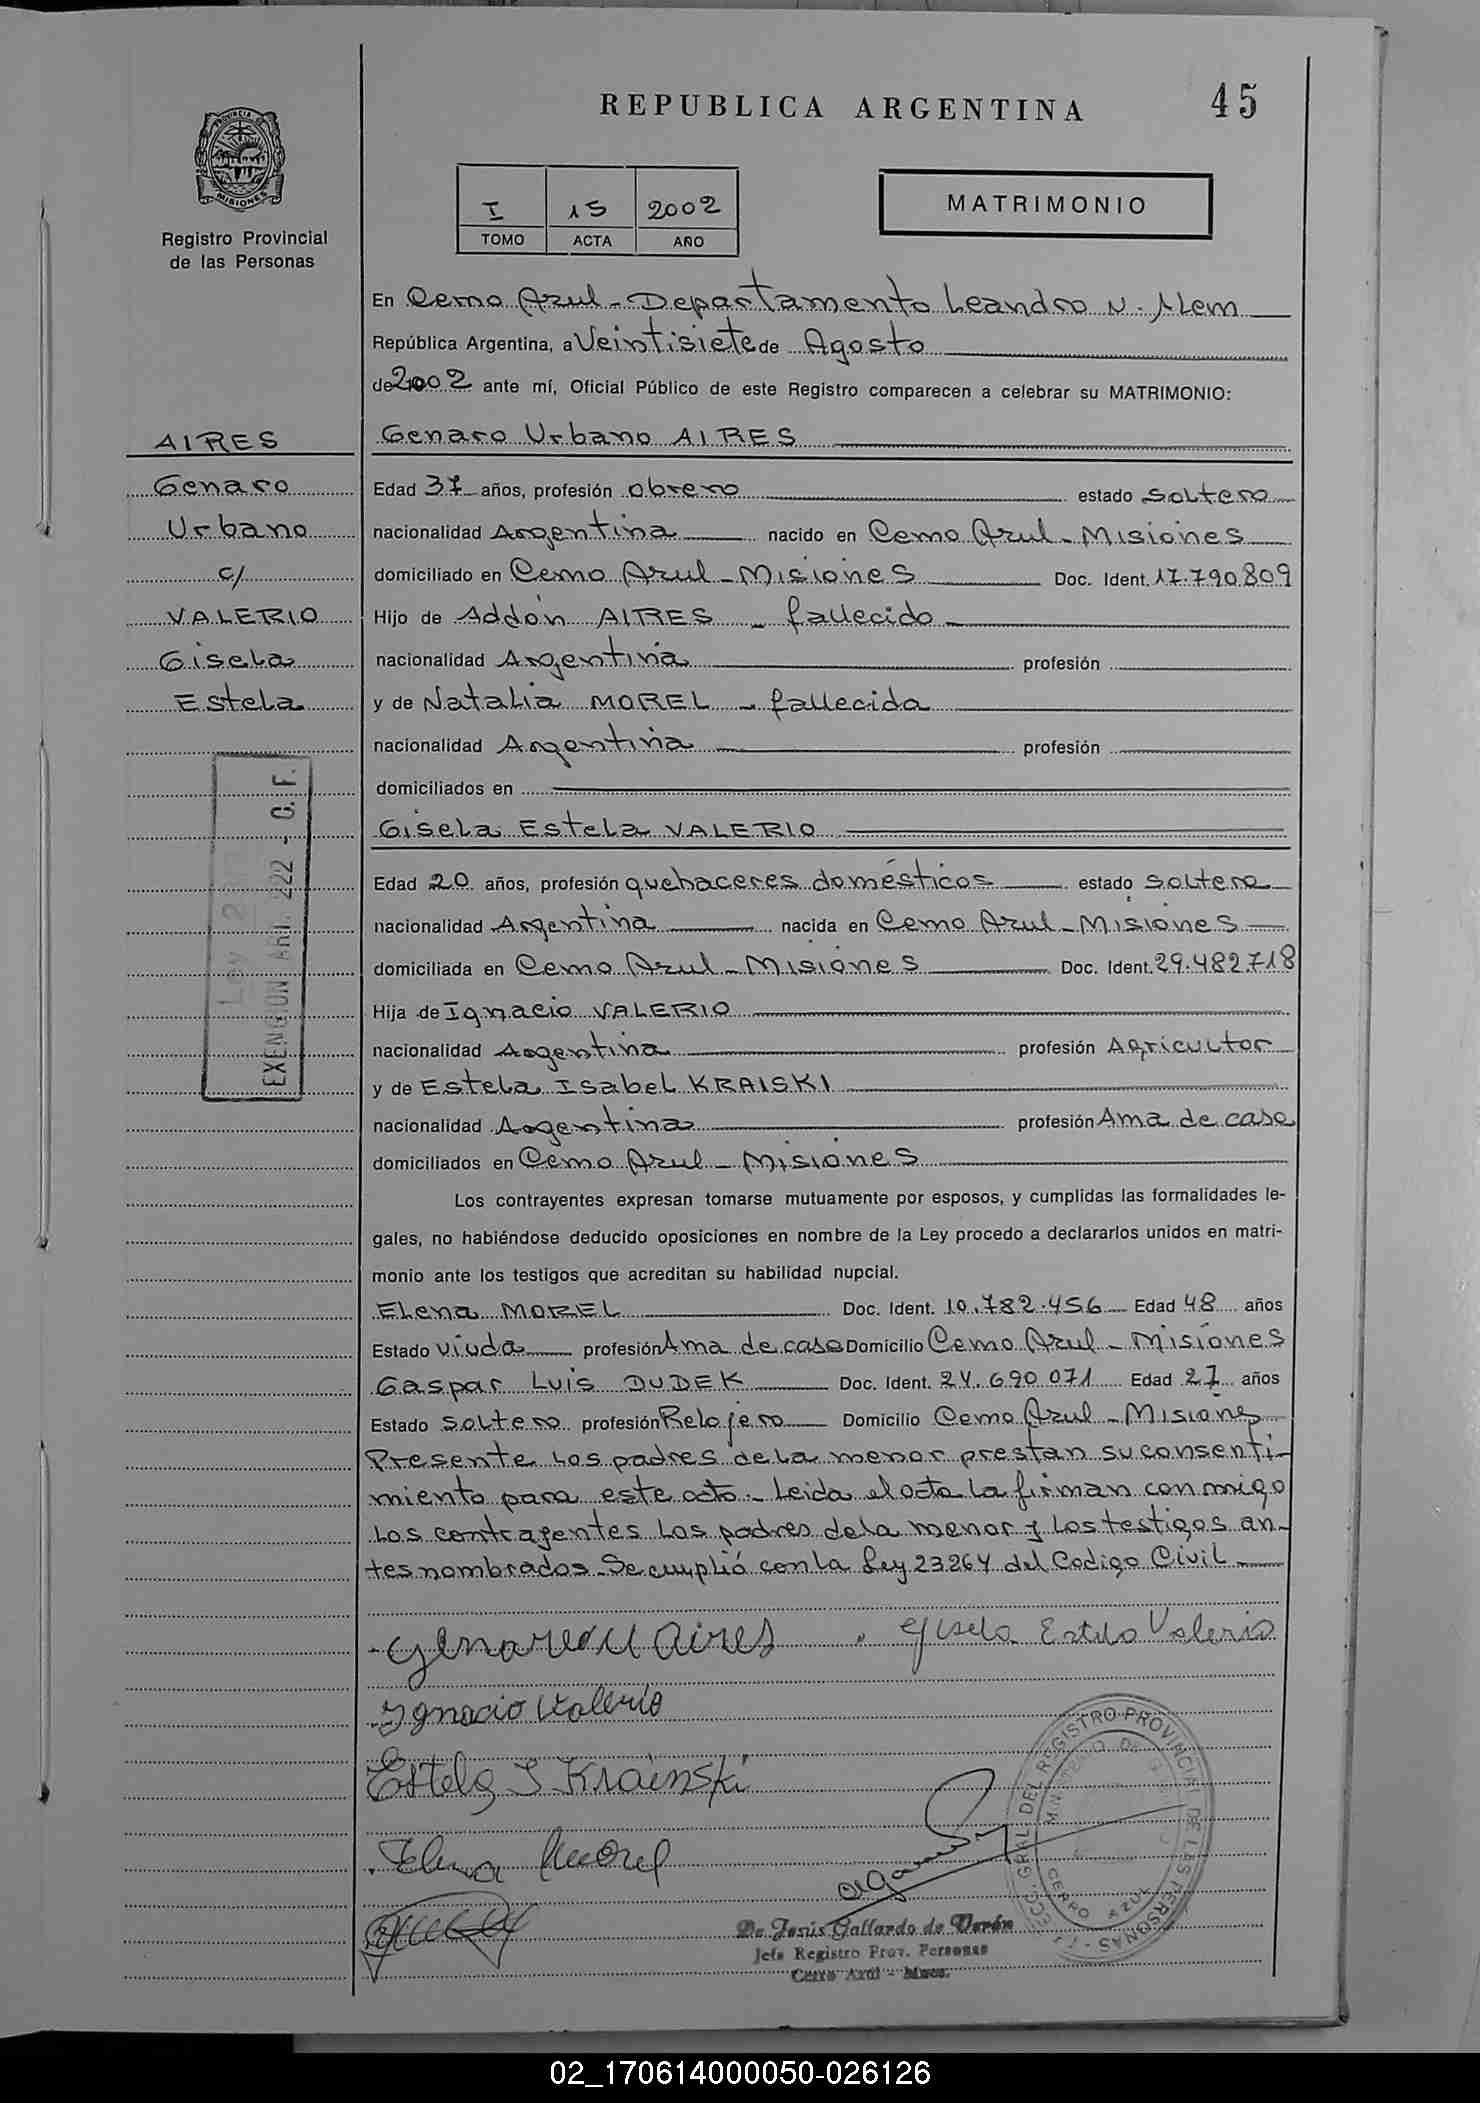 REPUBLICA ARGENTINA
45
PROVINCIA DE
MISIONES
Registro Provincial
de las Personas
I 15 2002
TOMO ACTA AÑO
MATRIMONIO
En Cerro Azul - Departamento Leandro N. Alem
República Argentina, a Veintisiete de Agosto
de 2002 ante mí, Oficial Público de este Registro comparecen a celebrar su MATRIMONIO:
Genaro Urbano AIRES
Edad 37 años, profesión obrero estado soltero
nacionalidad Argentina nacido en Cerro Azul - Misiones
domiciliado en Cerro Azul - Misiones Doc. Ident. 17.790.809
Hijo de Addón AIRES - fallecido -
nacionalidad Argentina profesión
y de Natalia MOREL - fallecida
nacionalidad Argentina profesión
domiciliados en
Gisela Estela VALERIO
Edad 20 años, profesión quehaceres domésticos estado soltera
nacionalidad Argentina nacida en Cerro Azul - Misiones
domiciliada en Cerro Azul - Misiones Doc. Ident. 29.482.718
Hija de Ignacio VALERIO
nacionalidad Argentina profesión Agricultor
y de Estela Isabel KRAISKI
nacionalidad Argentina profesión Ama de casa
domiciliados en Cerro Azul - Misiones
Los contrayentes expresan tomarse mutuamente por esposos, y cumplidas las formalidades le-
gales, no habiéndose deducido oposiciones en nombre de la Ley procedo a declararlos unidos en matri-
monio ante los testigos que acreditan su habilidad nupcial.
Elena MOREL Doc. Ident. 10.782.456 Edad 48 años
Estado viuda profesión Ama de casa Domicilio Cerro Azul - Misiones
Gaspar Luis DUDEK Doc. Ident. 24.690.071 Edad 27 años
Estado soltero profesión Relojero Domicilio Cerro Azul - Misiones
Presente los padres de la menor prestan su consenti-
miento para este acto.- Leida el acta la firman conmigo
los contrayentes los padres de la menor y los testigos an-
tes nombrados. Se cumplió con la Ley 23264 del Codigo Civil
AIRES
Genaro
Urbano
c/
VALERIO
Gisela
Estela
Ley
EXENCION Art. 222 - C. F.
Genaro U Aires
Gisela Estela Valerio
Ignacio Valerio
Estela I Krainski
Elena Morel
De Jesús Gallardo de Verón
Jefe Registro Prov. Personas
Cerro Azul - Mnes.
DEL REGISTRO PROVINCIAL DE LAS PERSONAS
CERRO AZUL
02_170614000050-026126